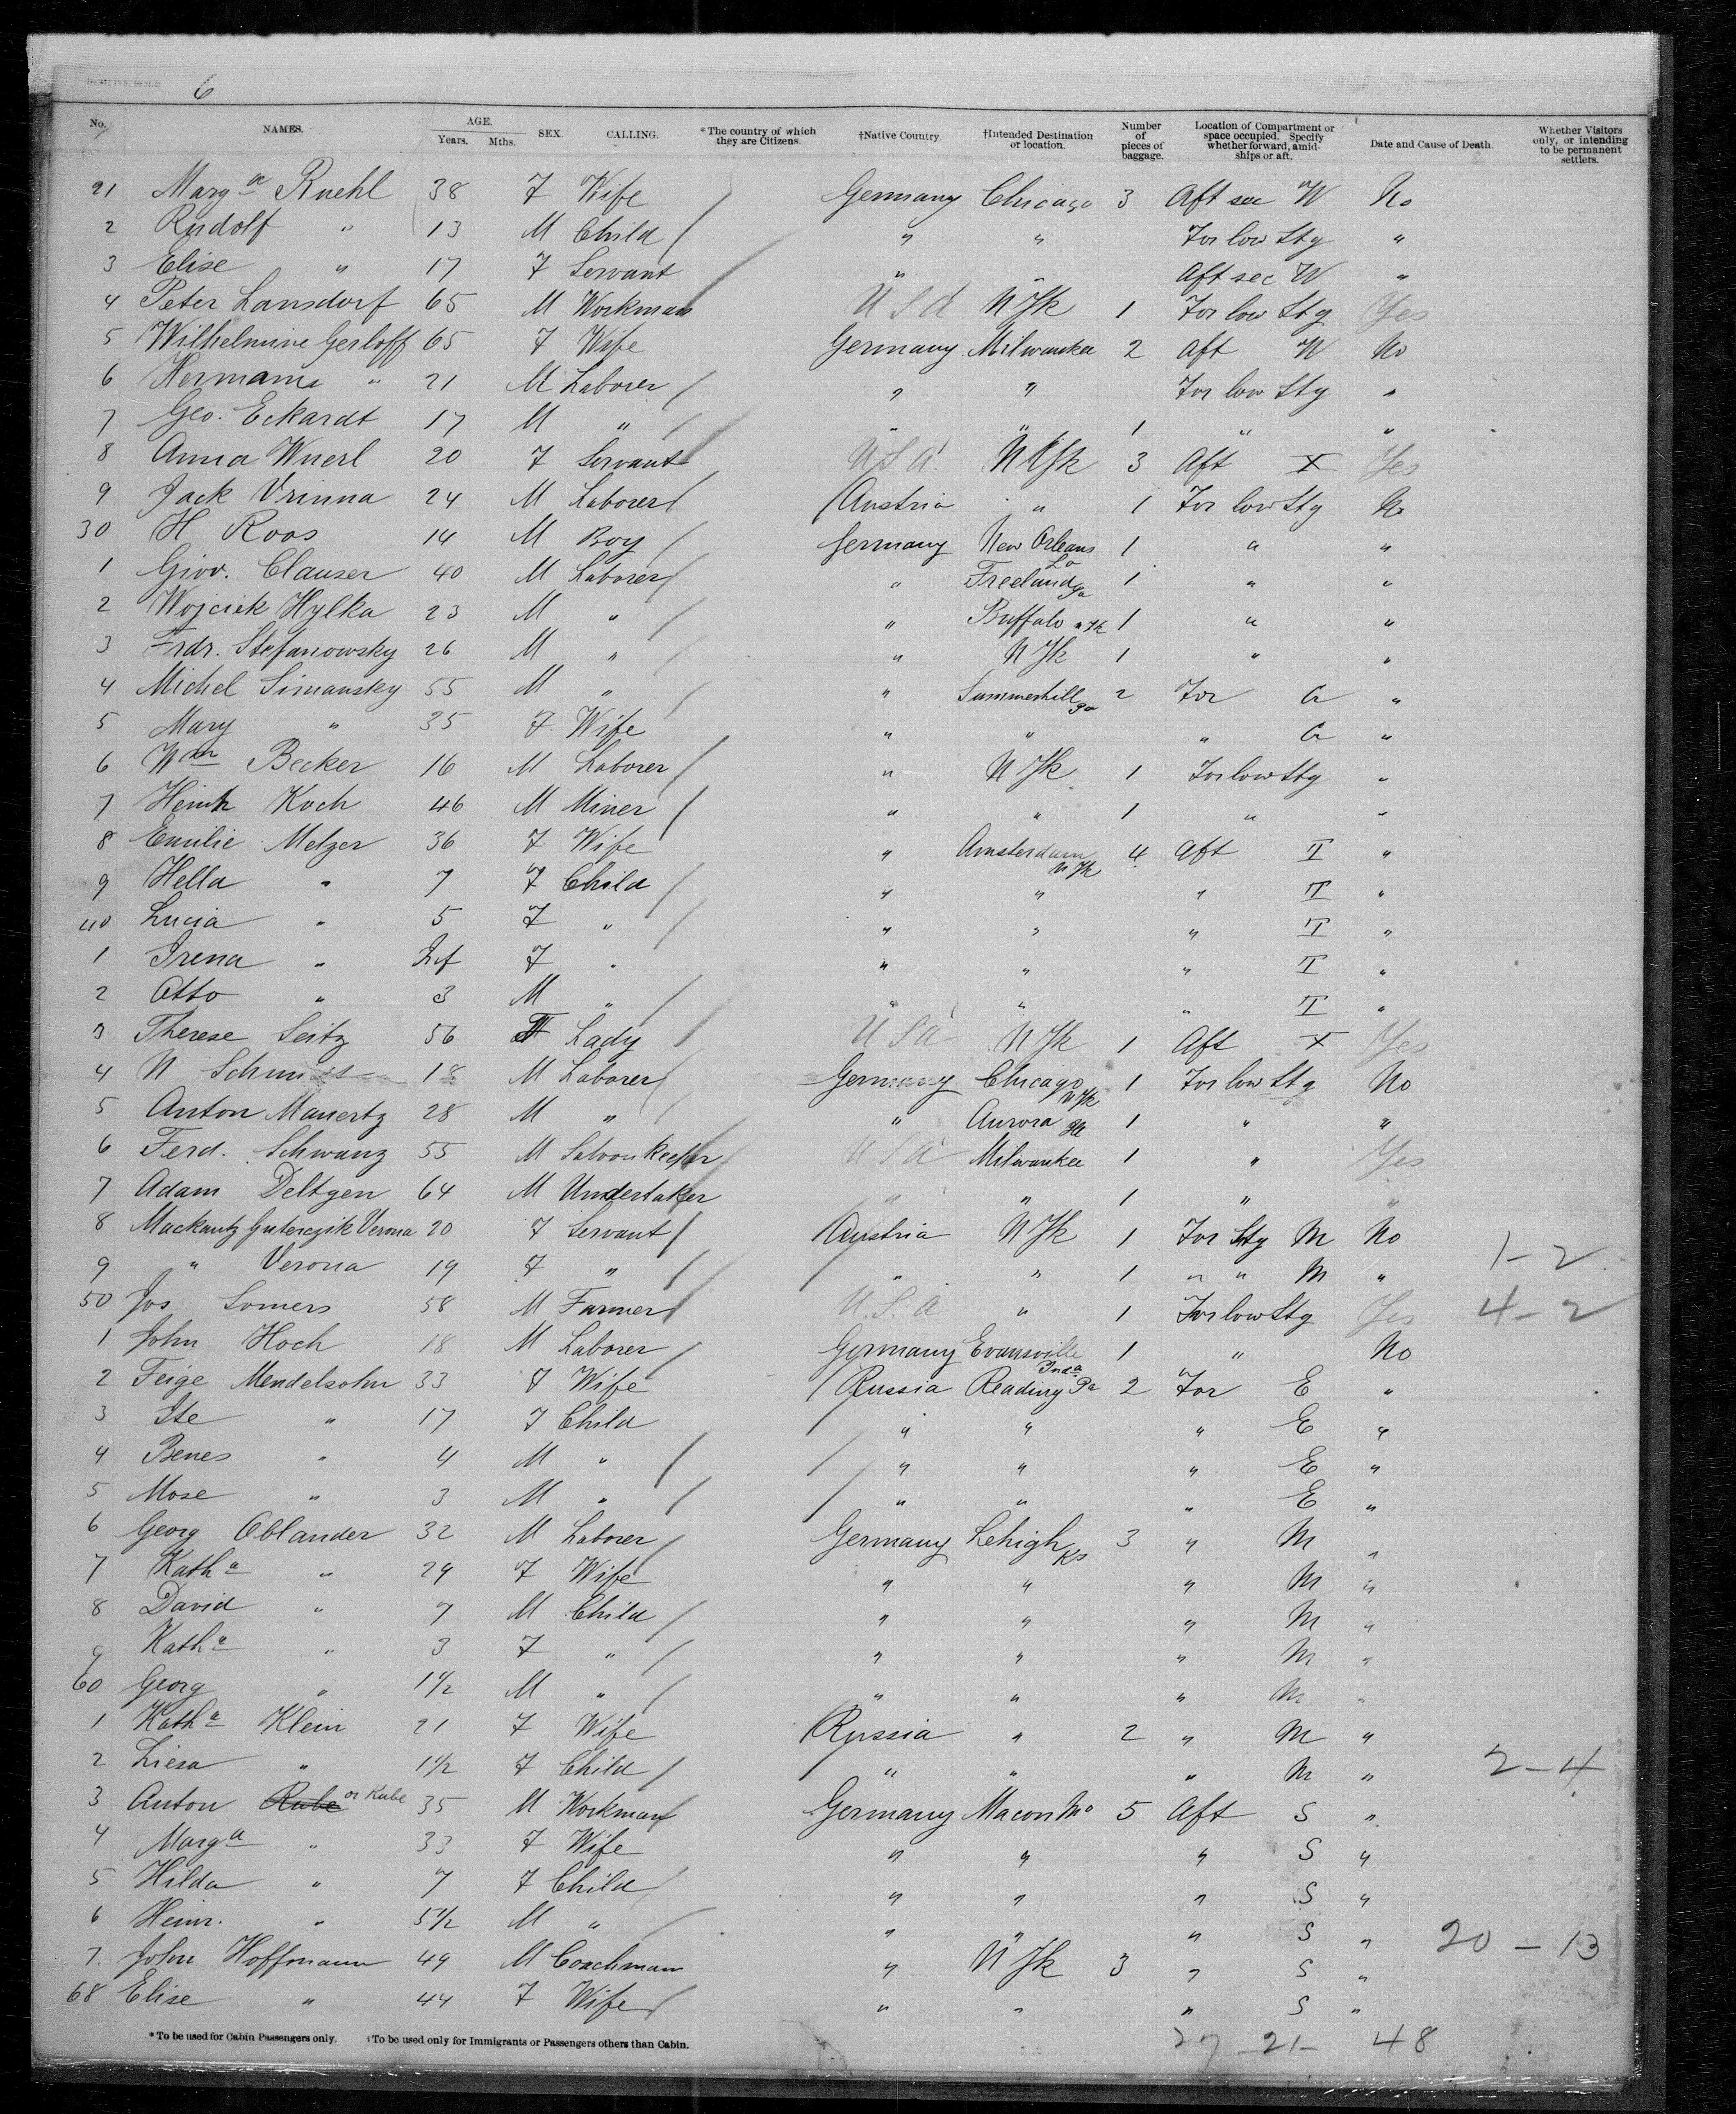 6
No. NAMES. AGE. Years. Mths. SEX. CALLING. *The country of which they are Citizens. †Native Country. †Intended Destination or location. Number of pieces of baggage. Location of Compartment or space occupied. Specify whether forward, amidships or aft. Date and Cause of Death. Whether Visitors only, or intending to be permanent settlers.
21 Marga Ruehl 38 F Wife Germany Chicago 3 Aft sec W No
2 Rudolf " 13 M Child " " For low Stg "
3 Elise " 17 F Servant " " Aft sec W "
4 Peter Lansdorf 65 M Workman USA N Yk 1 For low Stg Yes
5 Wilhelmine Gerloff 65 F Wife Germany Milwaukee 2 Aft W No
6 Hermann " 21 M Laborer " " For low Stg "
7 Geo. Eckardt 17 M " " " 1 " "
8 Anna Wuerl 20 F Servant USA. N Yk 3 Aft X Yes
9 Jack Vrinna 24 M Laborer Austria " 1 For low Stg No
30 H Roos 14 M Boy Germany New Orleans La 1 " "
1 Giov. Clauser 40 M Laborer " Freeland Pa 1 " "
2 Wojciek Hylka 23 M " " Buffalo N Yk 1 " "
3 Frdr. Stefanowsky 26 M " " N Yk 1 " "
4 Michel Simansky 55 M " " Summerhill Pa 2 For G "
5 Mary " 35 F Wife " " " G "
6 Wm Becker 16 M Laborer " N Yk 1 For low Stg "
7 Heinh Koch 46 M Miner " " 1 " "
8 Emilie Metzer 36 F Wife " Amsterdam N Yk 4 Aft T "
9 Hella " 7 F Child " " " T "
40 Lucia " 5 F " " " " T "
1 Irena " Inf F " " " " T "
2 Otto " 3 M " " " " T "
3 Therese Seitz 56 F Lady USA N Yk 1 Aft X Yes
4 N Schmidt 18 M Laborer Germany Chicago N Yk 1 For low Stg No
5 Anton Manertz 28 M " " Aurora Ill 1 " "
6 Ferd. Schwanz 55 M Saloonkeeper USA Milwaukee 1 " Yes
7 Adam Deltgen 64 M Undertaker " " 1 " "
8 Mackantz Guterczik Verona 20 F Servant Austria N Yk 1 For Stg M No
9 " Verona 19 F " " " 1 " " M " 1-2
50 Jos Somers 58 M Farmer U.S.A " 1 For low Stg Yes 4-2
1 John Hoch 18 M Laborer Germany Evansville Inda 1 " No
2 Feige Mendelsohn 33 F Wife Russia Reading Pa 2 For E "
3 Ite " 17 F Child " " " E "
4 Benes " 4 M " " " " E "
5 Mose " 3 M " " " " E "
6 Georg Oblander 32 M Laborer Germany Lehigh Ks 3 " M "
7 Katha " 29 F Wife " " " M "
8 David " 7 M Child " " " M "
9 Katha " 3 F " " " " M "
60 Georg " 1½ M " " " " M "
1 Katha Klein 21 F Wife Russia " 2 " M "
2 Liesa " 1½ F Child " " " M " 2-4
3 Anton Rube or Kube 35 M Workman Germany Macon Mo 5 Aft S "
4 Marga " 33 F Wife " " " S "
5 Hilda " 7 F Child " " " S "
6 Heinr. " 5½ M " " " " S "
7. John Hoffmann 49 M Coachman " N Yk 3 " S " 20-13
68 Elise " 44 F Wife " " " S "
*To be used for Cabin Passengers only. †To be used only for Immigrants or Passengers others than Cabin.
27-21- 48